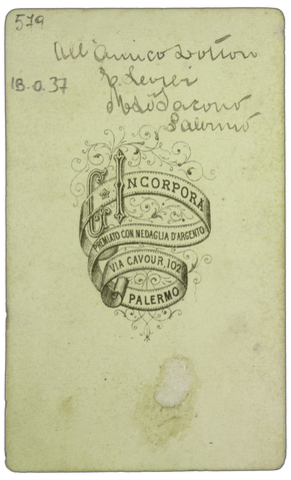 579
All'Amico Dottor
18-0.37
Palermo
G. INCORPORA
PREMIATO CON MEDAGLIA D'ARGENTO
VIA CAVOUR, 102
PALERMO